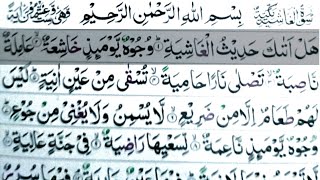 بِسْمِ اللّٰهِ الرَّحْمٰنِ الرَّحِيْمِ
هَلْ اَتٰىكَ حَدِيْثُ الْغَاشِيَةِ ۝ وُجُوْهٌ يَّوْمَىِٕذٍ خَاشِعَةٌ ۝ عَامِلَةٌ
نَّاصِبَةٌ ۝ تَصْلٰى نَارًا حَامِيَةً ۝ تُسْقٰى مِنْ عَيْنٍ اٰنِيَةٍ ۝ لَيْسَ
لَهُمْ طَعَامٌ اِلَّا مِنْ ضَرِيْعٍ ۝ لَّا يُسْمِنُ وَلَا يُغْنِيْ مِنْ جُوْعٍ ۝
وُجُوْهٌ يَّوْمَىِٕذٍ نَّاعِمَةٌ ۝ لِّسَعْيِهَا رَاضِيَةٌ ۝ فِيْ جَنَّةٍ عَالِيَةٍ ۝